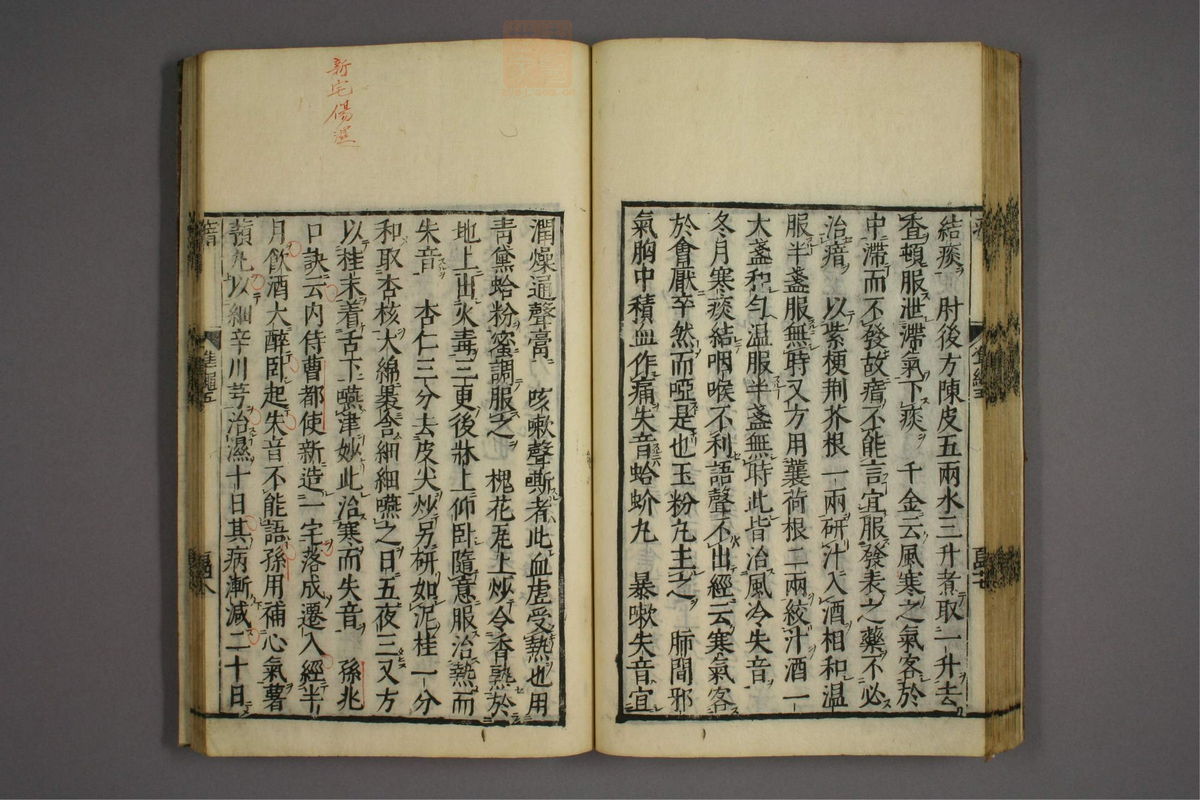 結痰 肘後方陳皮五兩水三升煮取一升去
査頓服泄滯氣下痰 千金云風寒之氣客於
中滯而不發故瘖不能言宜服發表之藥不必
治瘖 以紫梗荆芥根一兩研汁入酒相和溫
服半盞服無時又方用蘘荷根二兩絞汁酒一
大盞和勻溫服半盞無時此皆治風冷失音
冬月寒痰結咽喉不利語聲不出經云寒氣客
於會厭卒然而啞是也玉粉丸主之 肺間邪
氣胸中積血作痛失音蛤蚧丸 暴嗽失音宜
潤燥通聲膏 咳嗽聲嘶者此血虛受熱也用
青黛蛤粉蜜調服之 槐花瓦上炒令香熟於
地上出火毒三更後牀上仰卧隨意服治熱而
失音 杏仁三分去皮尖炒另研如泥桂一分
和取杏核大綿裹含細細嚥之日五夜三又方
以桂末着舌下嚥津妙此治寒而失音 孫兆
口訣云内侍曹都使新造一宅落成遷入經半
月飲酒大醉卧起失音不能語孫用補心氣薯
蕷丸以細辛川芎治濕十日其病漸減二十日
新宅傷濕